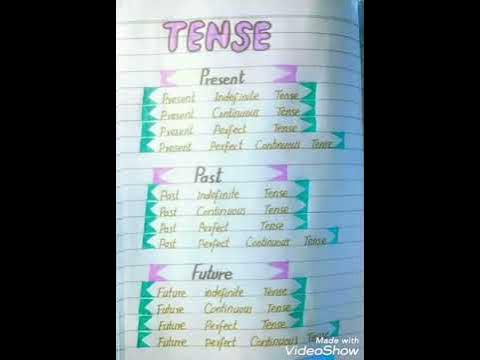 TENSE
Present
Present Indefinite Tense
Present Continuous Tense
Present Perfect Tense
Present Perfect Continuous Tense
Past
Past Indefinite Tense
Past Continuous Tense
Past Perfect Tense
Past Perfect Continuous Tense
Future
Future indefinite Tense
Future Continuous Tense
Future Perfect Tense
Future perfect Continuous Tense
Made with
VideoShow